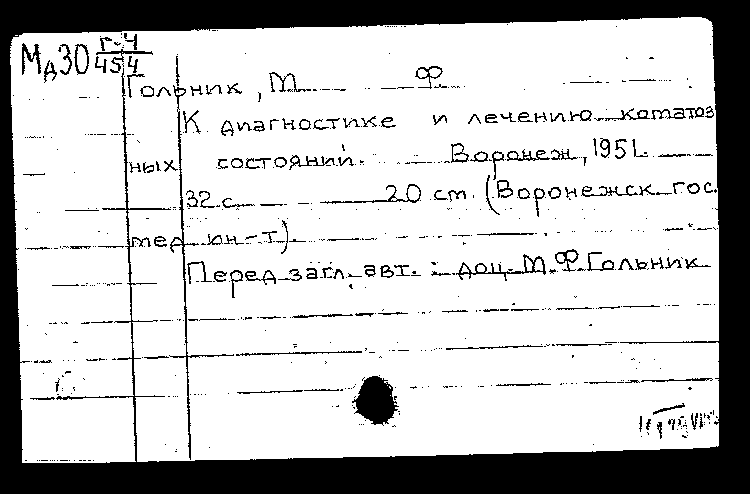 Мд30 Г-4
454
Гольник, М Ф.
К диагностике и лечению коматоз
ных состояний. Воронеж, 1951.
32 с. 20 см. (Воронежск. гос.
мед. ин-т).
Перед загл. авт.: доц. М.Ф.Гольник